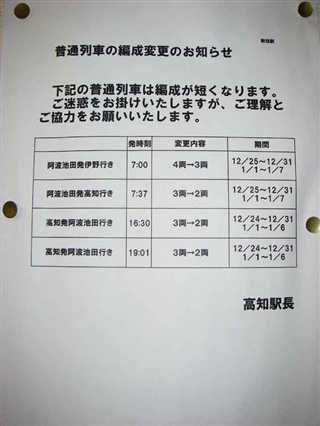 普通列車の編成変更のお知らせ
下記の普通列車は編成が短くなります。
ご迷惑をお掛けいたしますが、ご理解と
ご協力をお願いいたします。
発時刻 変更内容 期間
阿波池田発伊野行き 7:00 4両→3両 12/25～12/31
1/1～1/7
阿波池田発高知行き 7:37 3両→2両 12/25～12/31
1/1～1/7
高知発阿波池田行き 16:30 3両→2両 12/24～12/31
1/1～1/6
高知発阿波池田行き 19:01 3両→2両 12/24～12/31
1/1～1/6
高知駅長